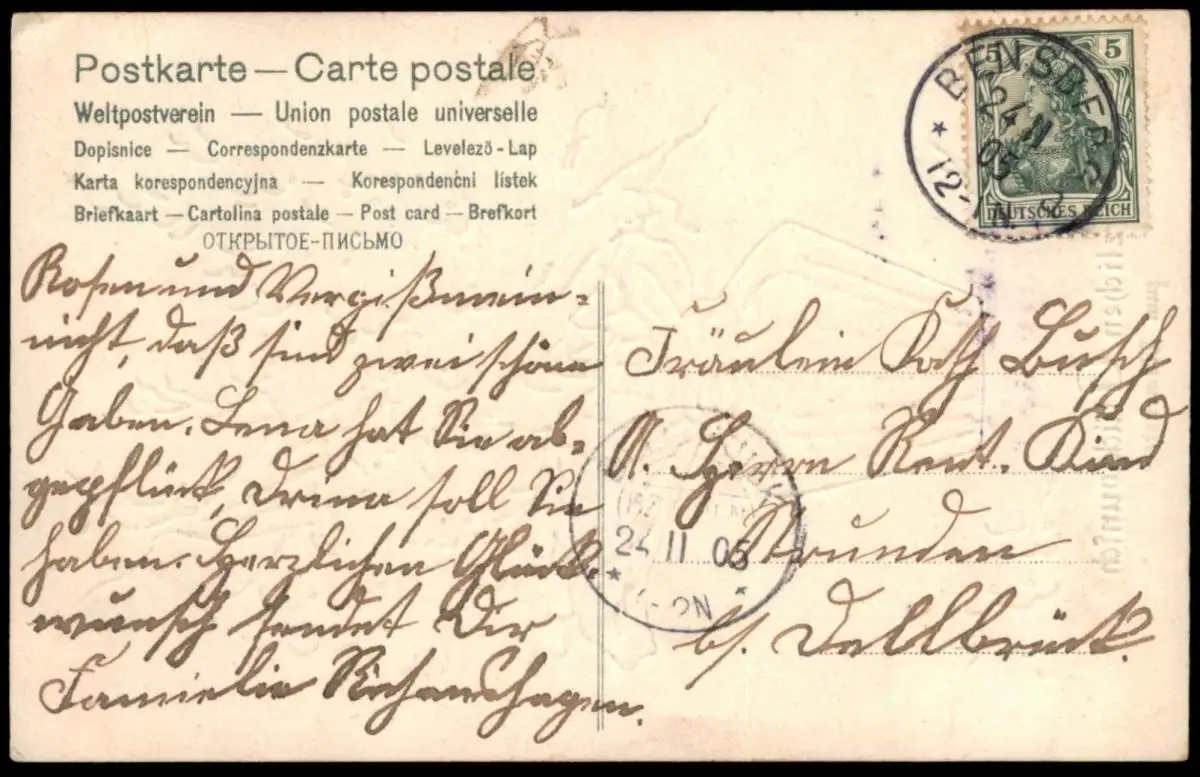 Postkarte — Carte postale
Weltpostverein — Union postale universelle
Dopisnice — Correspondenzkarte — Levelező-Lap
Karta korespondencyjna — Korespondenčni listek
Briefkaart — Cartolina postale — Post card — Brefkort
ОТКРЫТОЕ-ПИСЬМО
5 5
DEUTSCHES REICH
BENSBERG
24 II
05
12-1 N.
Rosen und Vergißmein=
nicht, daß sind zwei schöne
Gaben. Lena hat Sie ab=
gepflückt, Drina soll Sie
haben. Herzlichen Glück=
wunsch sendet Dir
Familie
Fräulein Kath Busch
A. Herrn Rent. Kind
Strunden
bs. Dellbrück.
24 II 05
-2N